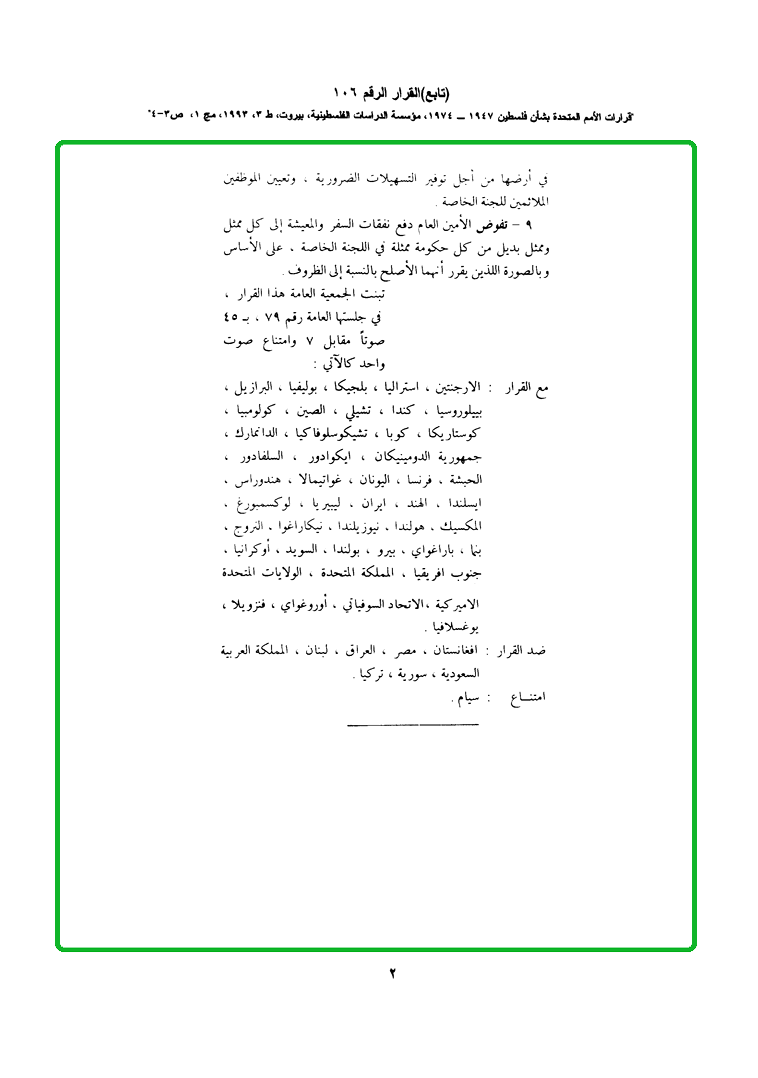 (تابع)القرار الرقم ١٠٦
"قرارات الأمم المتحدة بشأن فلسطين ١٩٤٧ ــ ١٩٧٤، مؤسسة الدراسات الفلسطينية، بيروت، ط ٣، ١٩٩٣، مج ١، ص٣-٤"
في أرضها من أجل توفير التسهيلات الضرورية ، وتعيين الموظفين
الملائمين للجنة الخاصة .
٩ – تفوض الأمين العام دفع نفقات السفر والمعيشة إلى كل ممثل
وممثل بديل من كل حكومة ممثلة في اللجنة الخاصة ، على الأساس
وبالصورة اللذين يقرر أنهما الأصلح بالنسبة إلى الظروف .
تبنت الجمعية العامة هذا القرار ،
في جلستها العامة رقم ٧٩ ، بـ ٤٥
صوتاً مقابل ٧ وامتناع صوت
واحد كالآتي :
مع القرار : الارجنتين ، استراليا ، بلجيكا ، بوليفيا ، البرازيل ،
بييلوروسيا ، كندا ، تشيلي ، الصين ، كولومبيا ،
كوستاريكا ، كوبا ، تشيكوسلوفاكيا ، الدانمارك ،
جمهورية الدومينيكان ، ايكوادور ، السلفادور ،
الحبشة ، فرنسا ، اليونان ، غواتيمالا ، هندوراس ،
ايسلندا ، الهند ، ايران ، ليبيريا ، لوكسمبورغ ،
المكسيك ، هولندا ، نيوزيلندا ، نيكاراغوا ، النروج ،
بنما ، باراغواي ، بيرو ، بولندا ، السويد ، أوكرانيا ،
جنوب افريقيا ، المملكة المتحدة ، الولايات المتحدة
الاميركية ، الاتحاد السوفياتي ، أوروغواي ، فنزويلا ،
يوغسلافيا .
ضد القرار : افغانستان ، مصر ، العراق ، لبنان ، المملكة العربية
السعودية ، سورية ، تركيا .
امتنـــاع : سيام .
٢